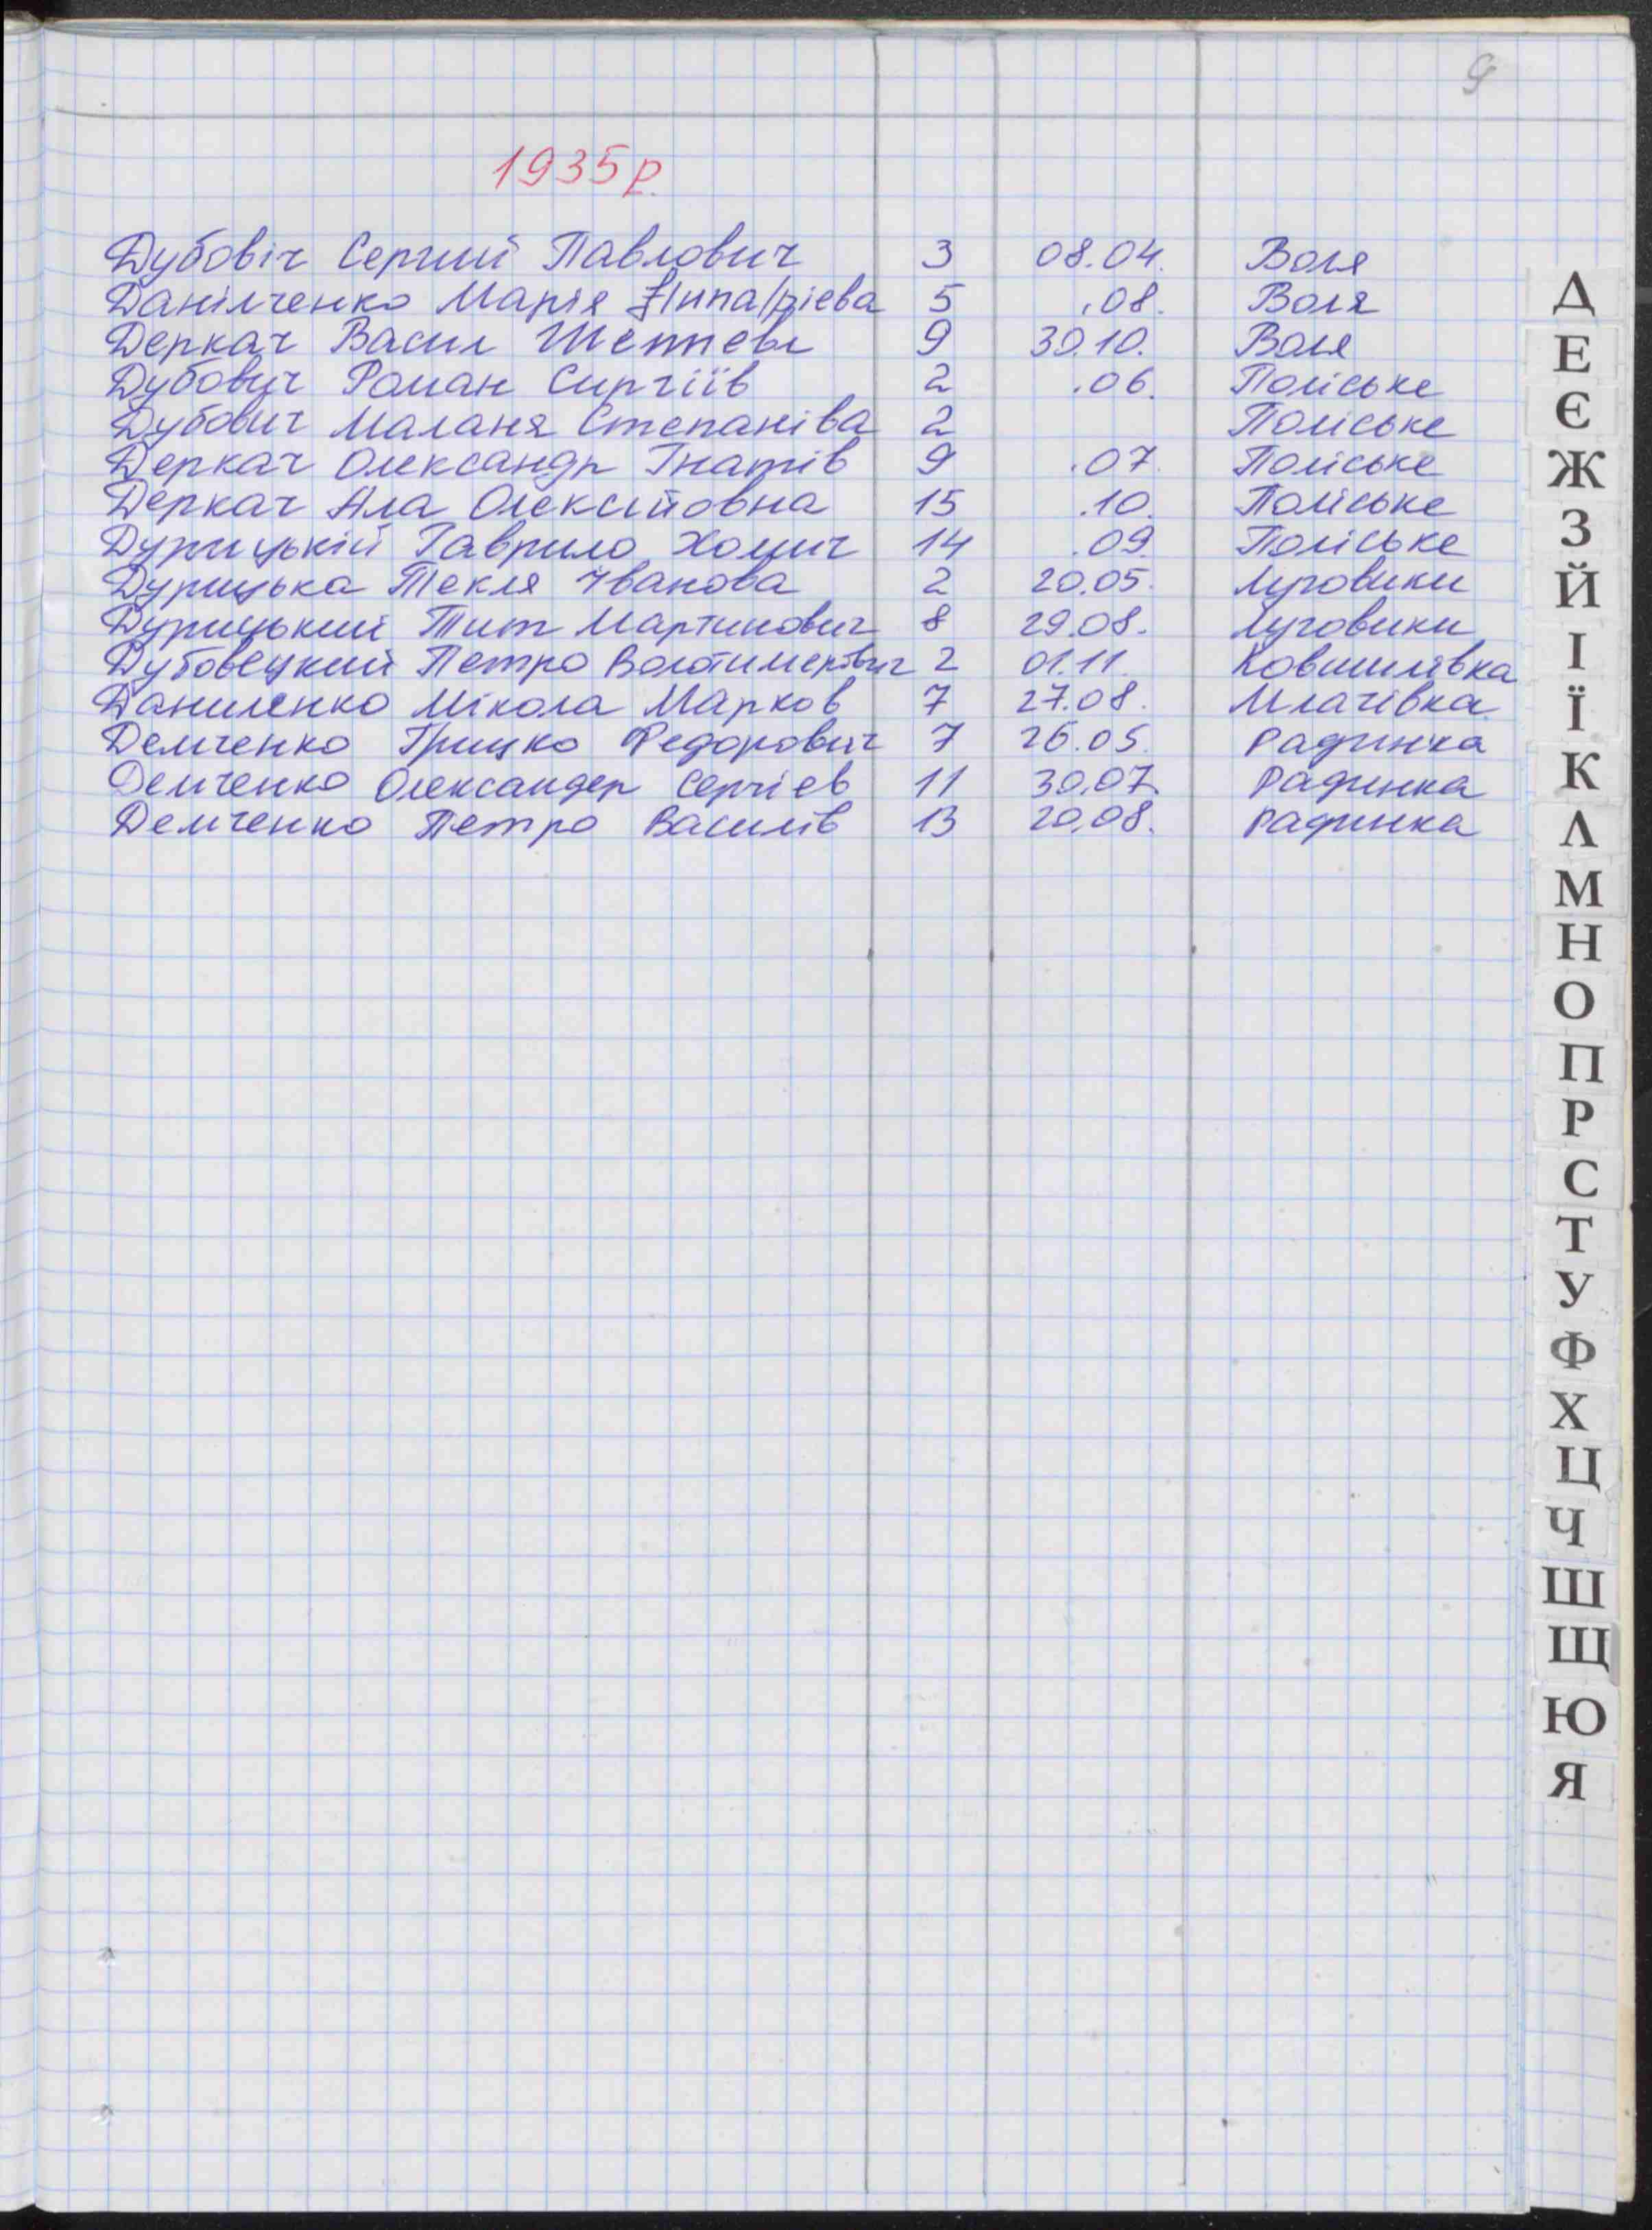 9
1935р.
Дубовіч Сергий Павлович 3 08.04. Воля
Данілченко Марія 5 .08. Воля
Деркач Васил 9 30.10. Воля
Дубович Роман Сиргіїв 2 .06. Поліське
Дубович Маланя Степаніва 2 Поліське
Деркач Олександр Гнатів 9 .07. Поліське
Деркач Ала Олексійовна 15 .10. Поліське
Дурицькій Гаврило Хомич 14 .09 Поліське
Дурицька Текля Іванова 2 20.05. Луговики
Дурицький Тит Мартинович 8 29.08. Луговики
Дубовецкий Петро 2 01.11. Ковшилівка
Даниленко Мікола Марков 7 27.08. Млачівка
Демченко Грицко Федорович 7 26.05. Радинка
Демченко Олександер Сергіев 11 30.07. Радинка
Демченко Петро Василів 13 20.08. Радинка
Д
Е
Є
Ж
З
Й
І
Ї
К
Л
М
Н
О
П
Р
С
Т
У
Ф
Х
Ц
Ч
Ш
Щ
Ю
Я